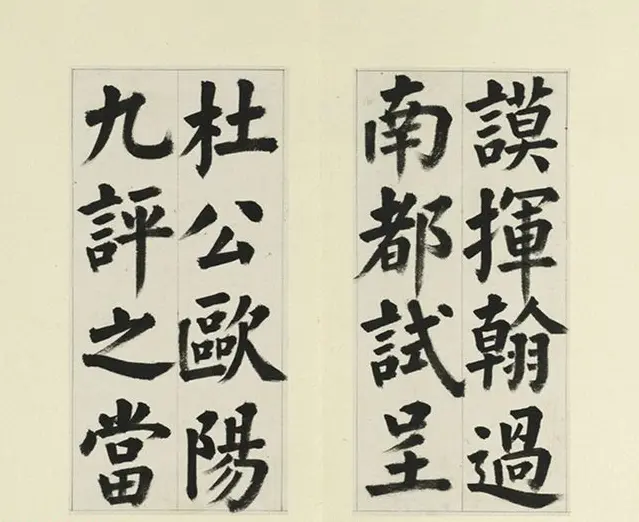 謨揮翰過
南都試呈
杜公歐陽
九評之當